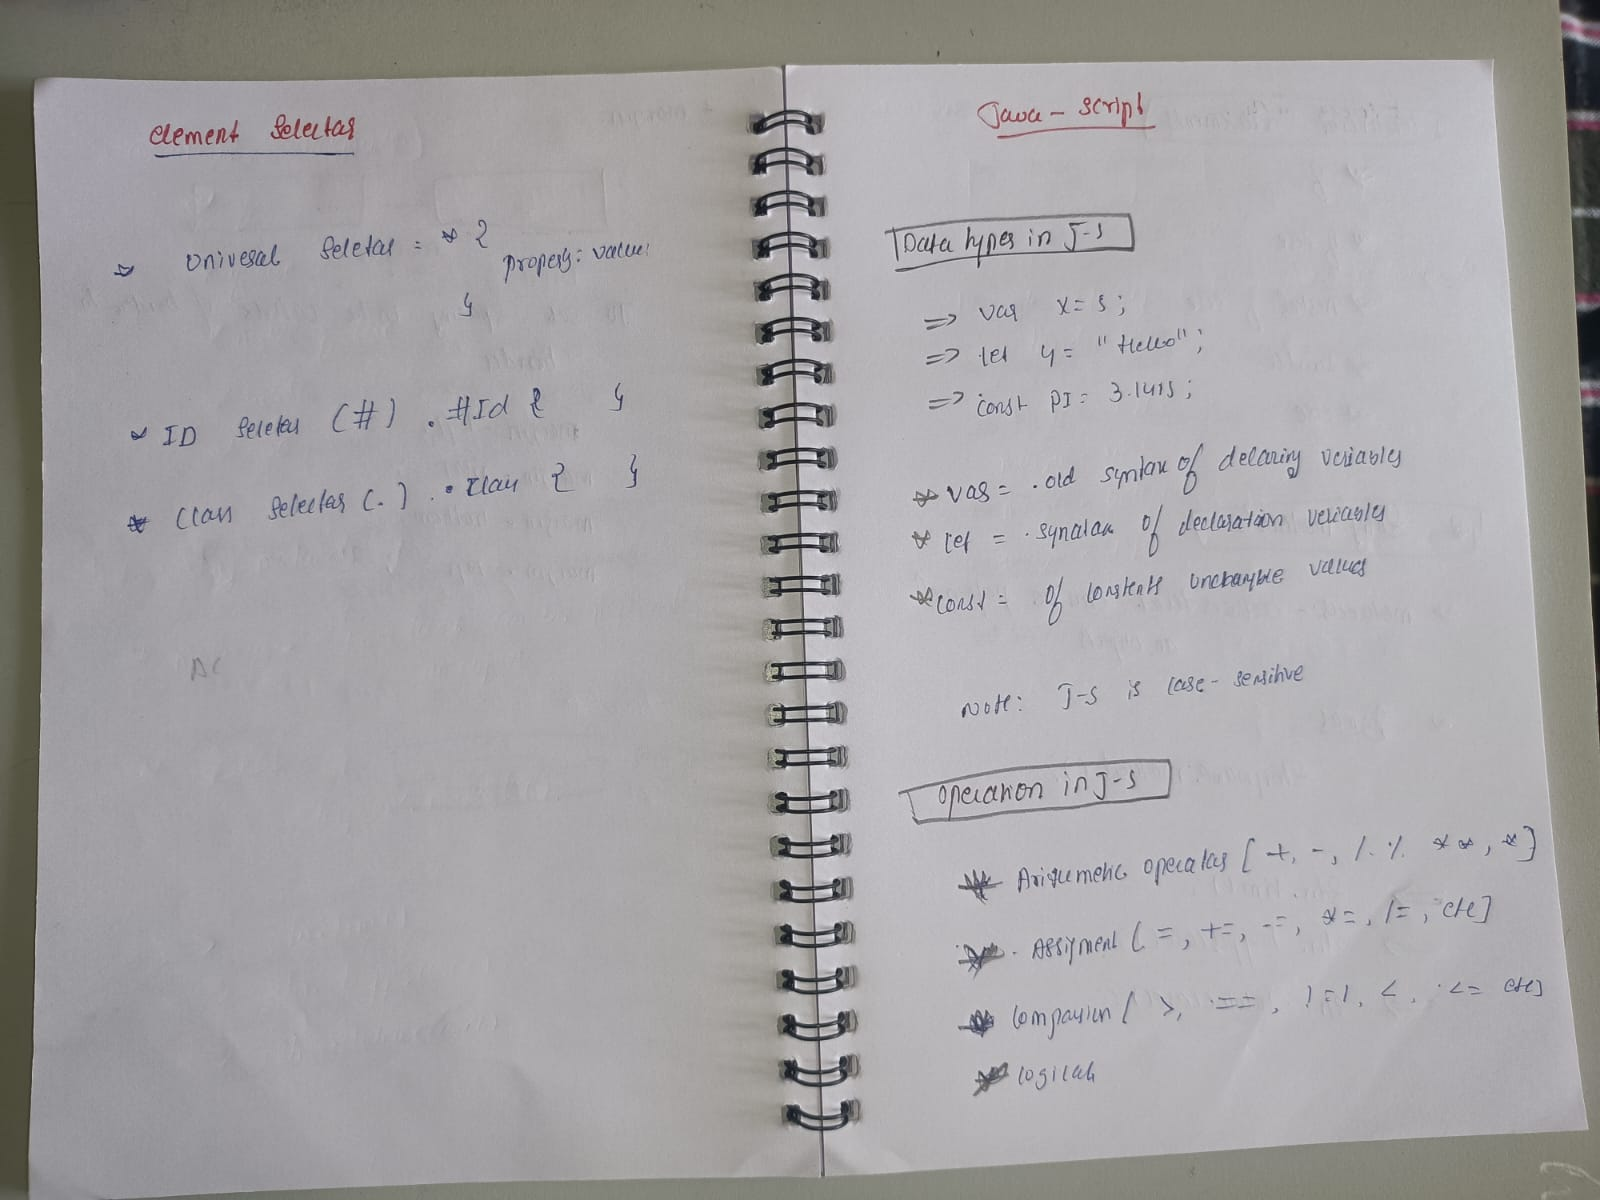 element Selectar
Univesal Seletar = * {
property: value;
}
ID Seletar (#) . #Id { }
Class Selectar (.) . . Class { }
AC
Java - script
Data types in J-S
=> var x = 5;
=> let y = "Hello";
=> const PI = 3.1415;
* var = . old syntax of delaring veriables
* let = . synatax of declaration veriables
* const = of constents unchangble values
Note: J-S is case - sensitive
operation in J-S
* Arithmetic operatas [ +, -, /. % **, *]
* . Assignment ( =, +=, -=, *=, /=, etc]
* comparisen [ >, ==, <, <= etc]
* logical